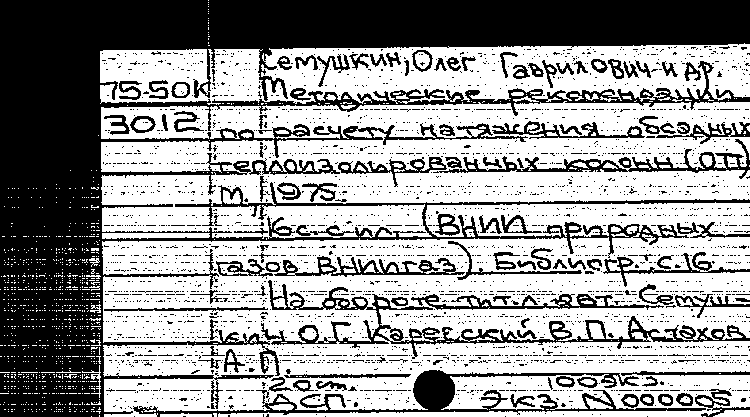 Семушкин, Олег Гаврилович и др.
75-50К Методические рекомендации
3012 по расчету натяжения обсадных
теплоизолированных колонн (ОТТ)
М., 1975.
16с. с ил. (ВНИИ природных
газов ВНИИгаз). Библиогр.: с.16.
На обороте тит.л. авт. Семуш-
кин О.Г. Каревский В.П., Астахов
А.П.
20 ст. 100 экз.
ДСП. Экз. N000005.